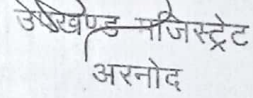 उपखण्ड मजिस्ट्रेट
अरनोद